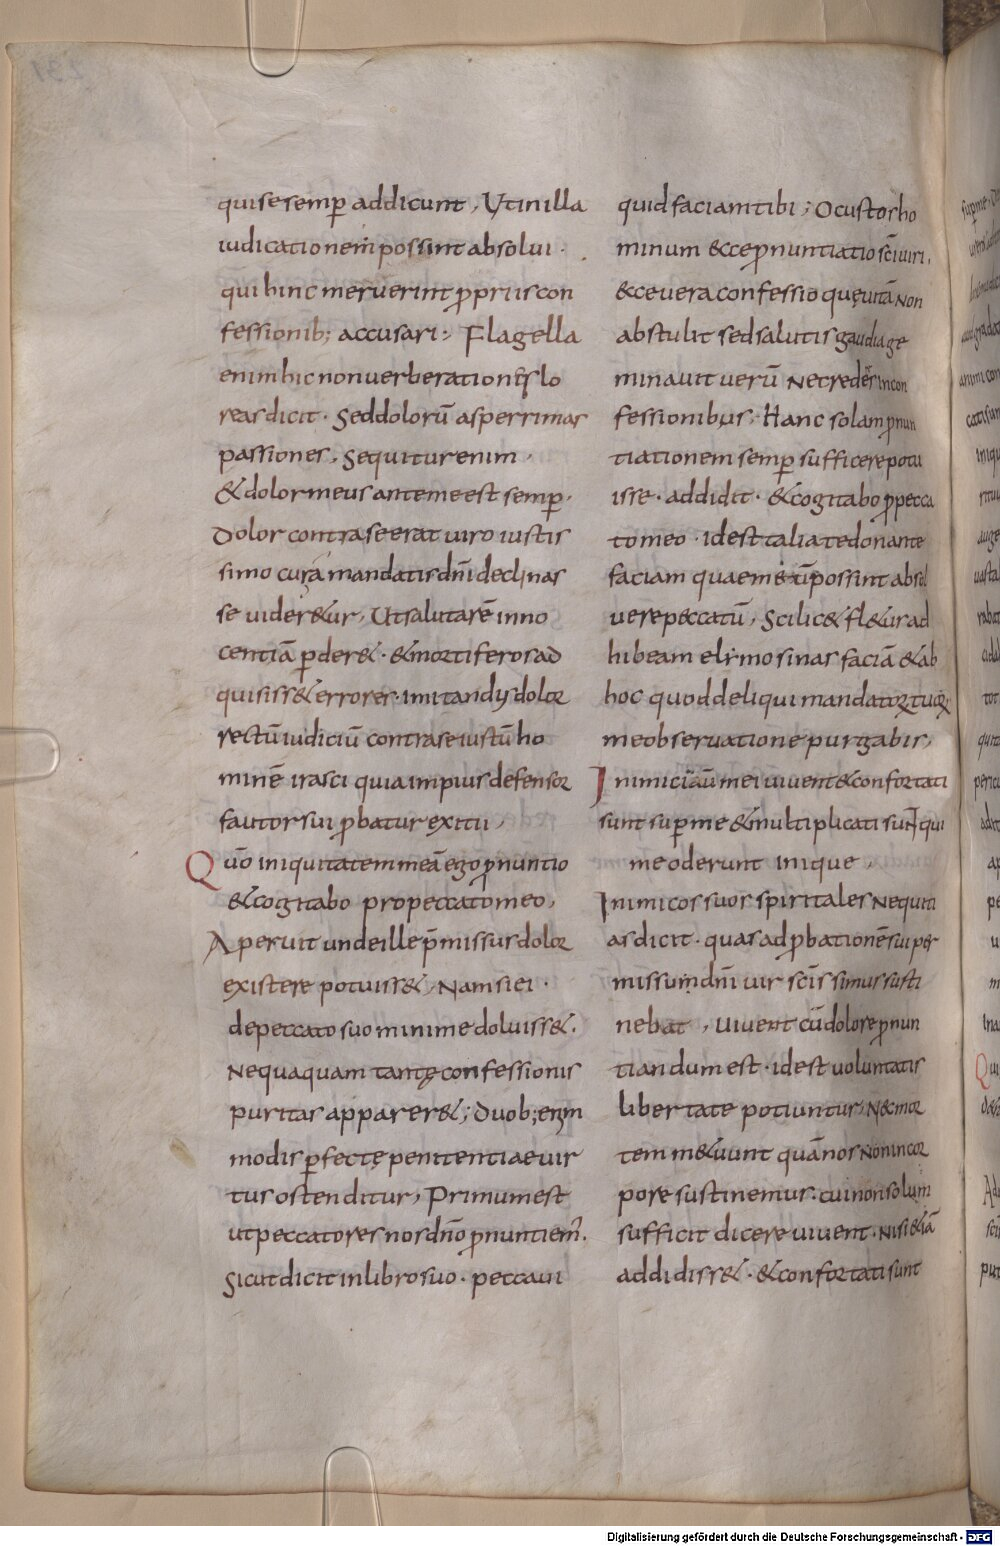 qui se semp̄ addicunt, Ut in illa
iudicationem possint absolui ·
qui hinc meruerint ꝓpriis con
fessionib; accusari; Flagella
enim hic non uerberationes lo
reas dicit · Sed dolorū asperrimas
passiones, Sequitur enim ·
& dolor meus ante me est semp̄ ·
Dolor contra se erat uiro iustis
simo cura mandatis dn̄i declinas
se uider&ur, Ut salutarē inno
centiā ꝑder& · & mortiferos ad
quisiss& errores · imitandus dolor
rectū iudiciū contra se iustū ho
minē irasci quia impius defensor
fautor sui ꝓbatur exitii,
Quō iniquitatem meā ego ꝓnuntio
& cogitabo pro peccato meo,
Aperuit unde ille p̄missus dolor
existere potuiss&, Nam si ei ·
de peccato suo minime doluiss& ·
Nequaquam tantę confessionis
puritas apparer&; Duob; enim
modis ꝑfectę penitentiae uir
tus ostenditur, Primum est
ut peccatores nos dn̄o ꝓnuntiem̄ ·
Sicut dicit in libro suo · peccaui
quid faciam tibi; O custos ho
minum & ce ꝓnuntiatio sc̄i uiri,
& ce uera confessio quę uitā non
abstulit sed salutis gaudia ge
minauit uerū Ne crederes in con
fessionibus, Hanc solam ꝓnun
tiationem semp̄ sufficere potu
isse · addidit · & cogitabo ꝓ pecca
to meo · id est talia te donante
faciam quae meū possint absol
uere peccatū, Scilic& fl&ur ad
hibeam elymosinas faciā & ab
hoc quod deliqui mandatoꝝ tuoꝝ
me obseruatione purgabis,
Inimici aū mei uiuent & confortati
sunt sup̄ me & multiplicati sunt qui
me oderunt inique,
Inimicos suos spiritales nequiti
as dicit · quas ad ꝓbationē sui per
missum dn̄i uir sc̄issimus susti
nebat, Uiuent cū dolore ꝓnun
tiandum est · id est uoluntatis
libertate potiuntur, Nec mor
tem m&uunt quā nos non in cor
pore sustinemus · cui non solum
sufficit dicere uiuent · nisi &iā
addidiss& · & confortati sunt
Digitalisierung gefördert durch die Deutsche Forschungsgemeinschaft - DFG